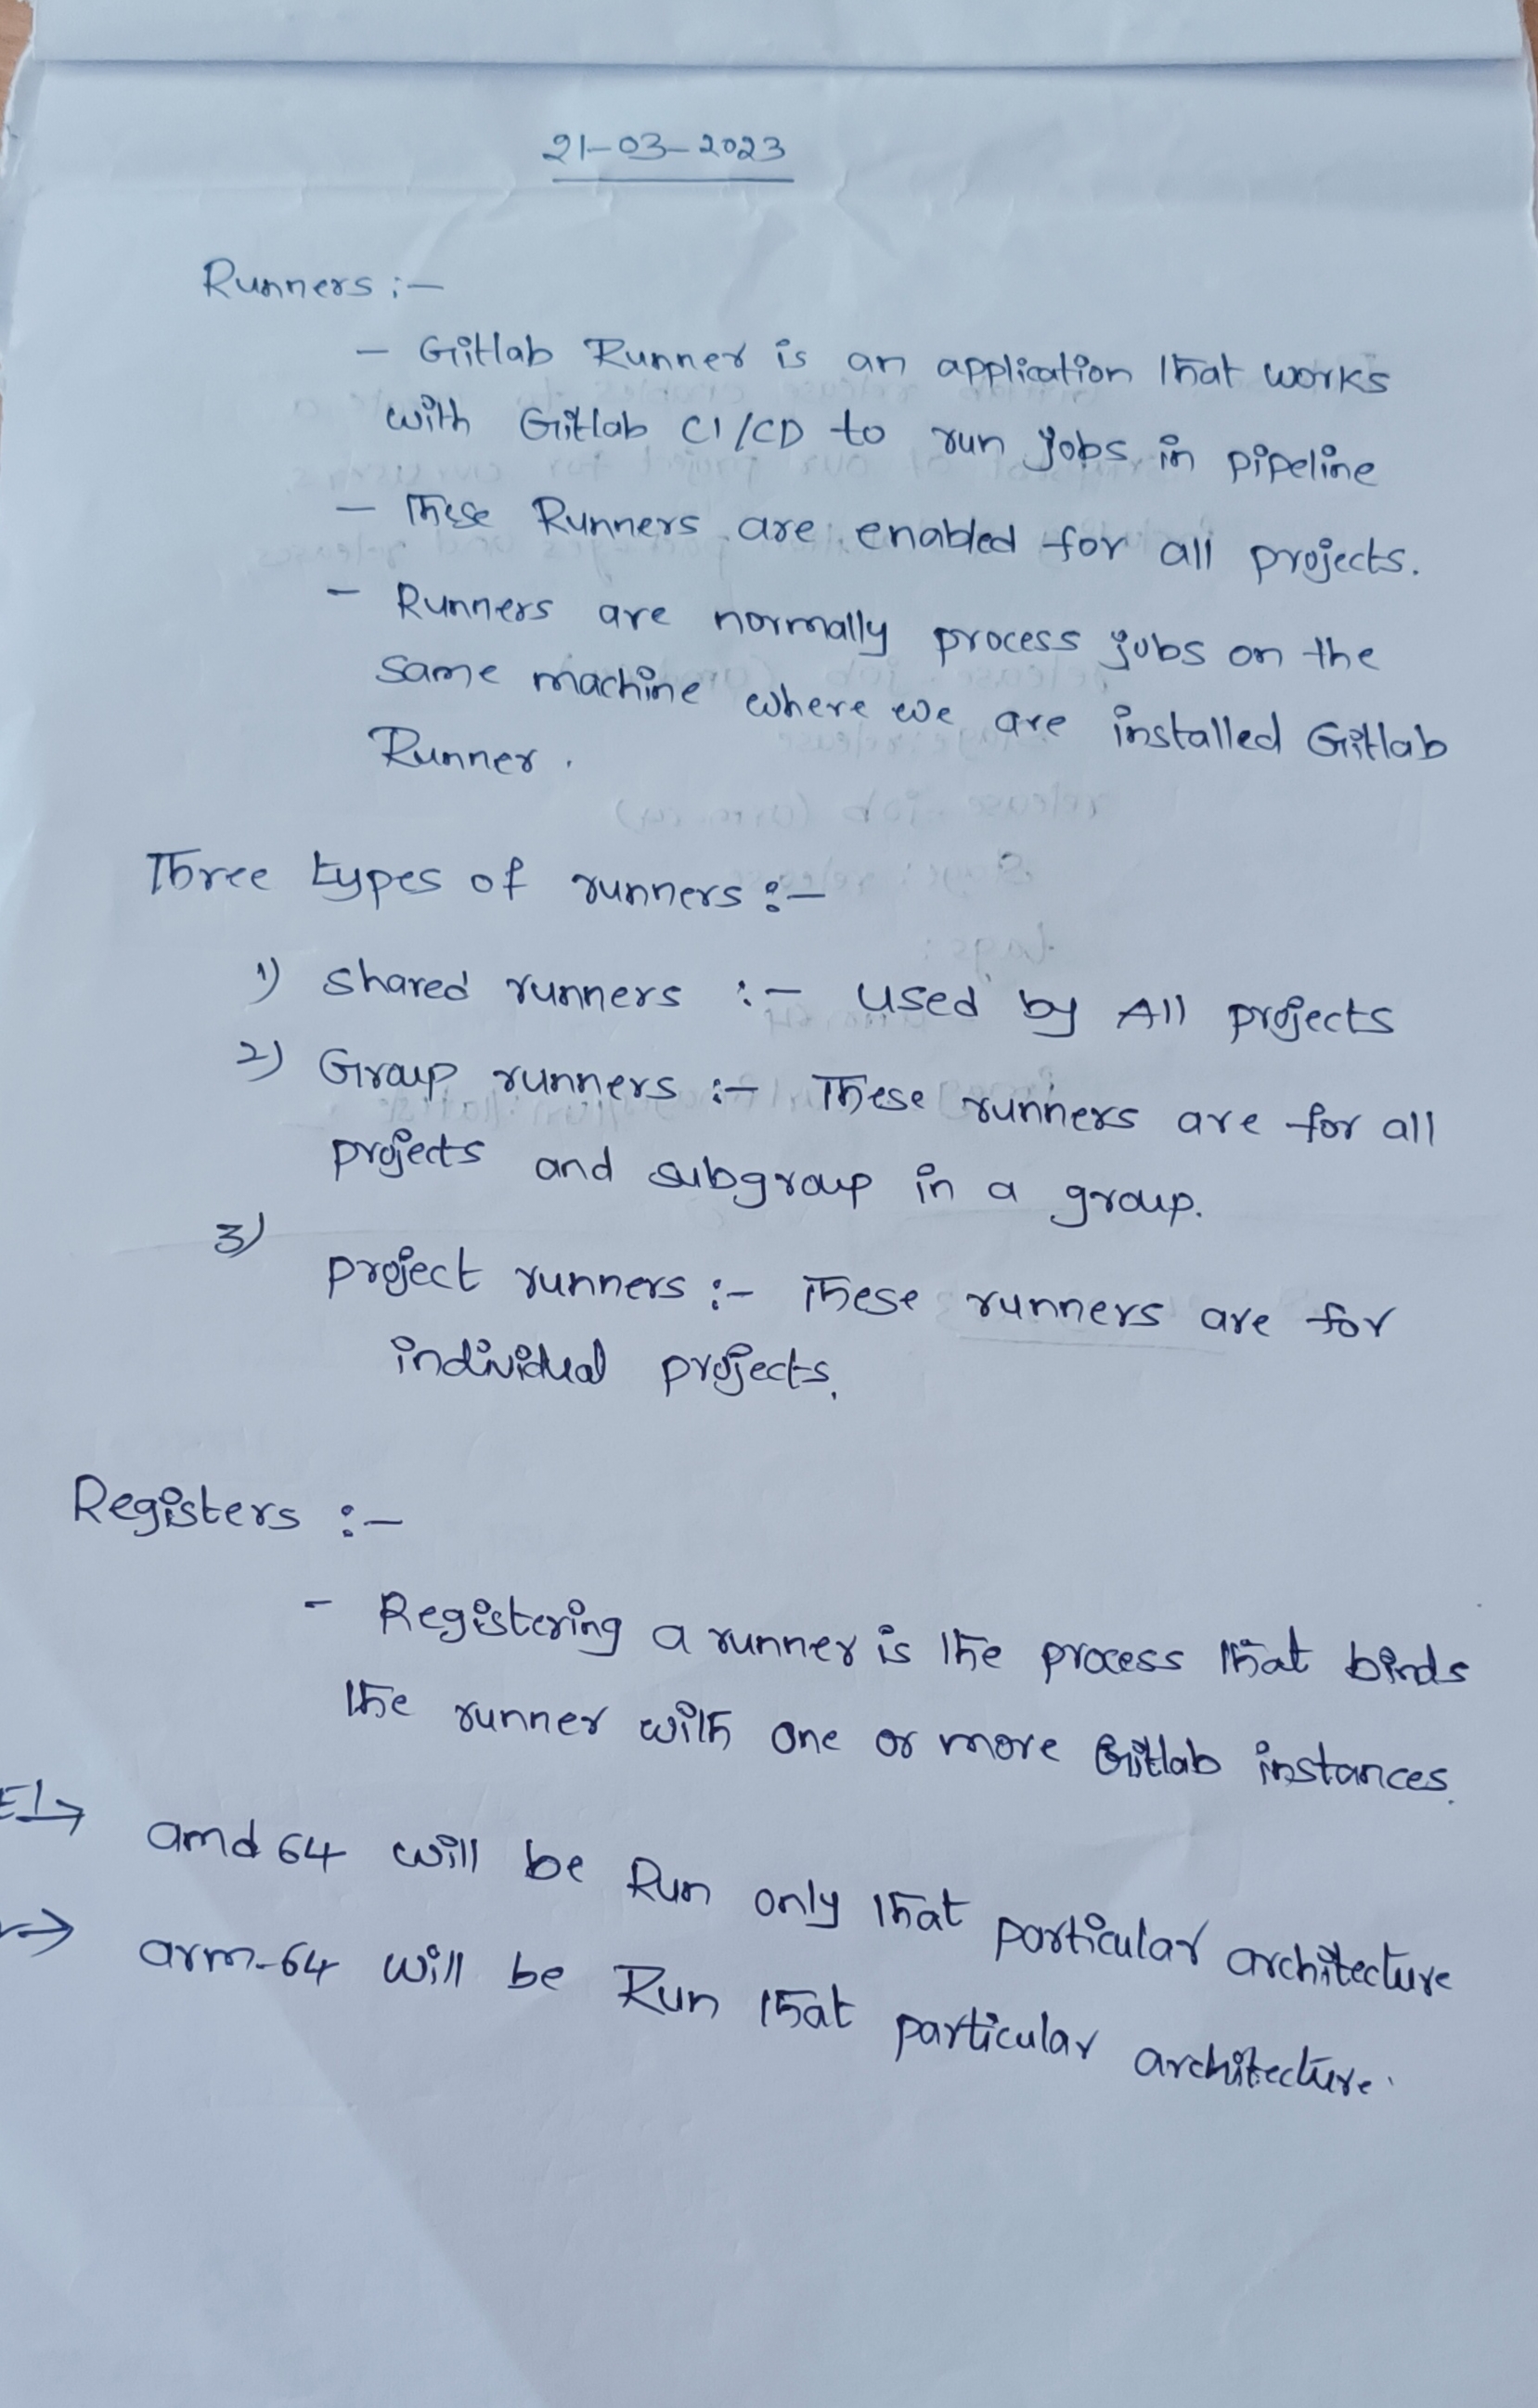 21-03-2023
Runners :-
- Gitlab Runner is an application that works
with Gitlab CI/CD to run jobs in pipeline
- These Runners are enabled for all projects.
- Runners are normally process jobs on the
same machine where we are installed Gitlab
Runner.
Three types of runners :-
1) shared runners :- used by All projects
2) Group runners :- These runners are for all
projects and subgroup in a group.
3) project runners :- These runners are for
individual projects.
Registers :-
- Registering a runner is the process that binds
the runner with one or more Gitlab instances.
→ amd 64 will be Run only that particular architecture
→ arm-64 will be Run that particular architecture.